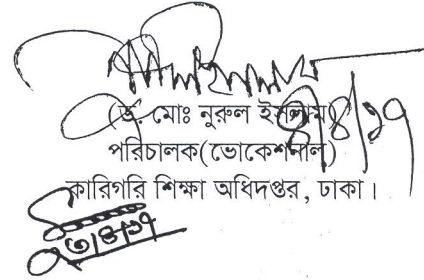 (ড. মোঃ নুরুল ইসলাম)
৪/৪/১৭
পরিচালক(ভোকেশনাল)
কারিগরি শিক্ষা অধিদপ্তর, ঢাকা।